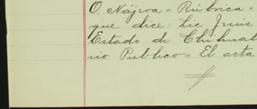 O Nájera - Rúbrica -
que dice: Lic Juic
Estado de Chihuah
rio Publico - El acta